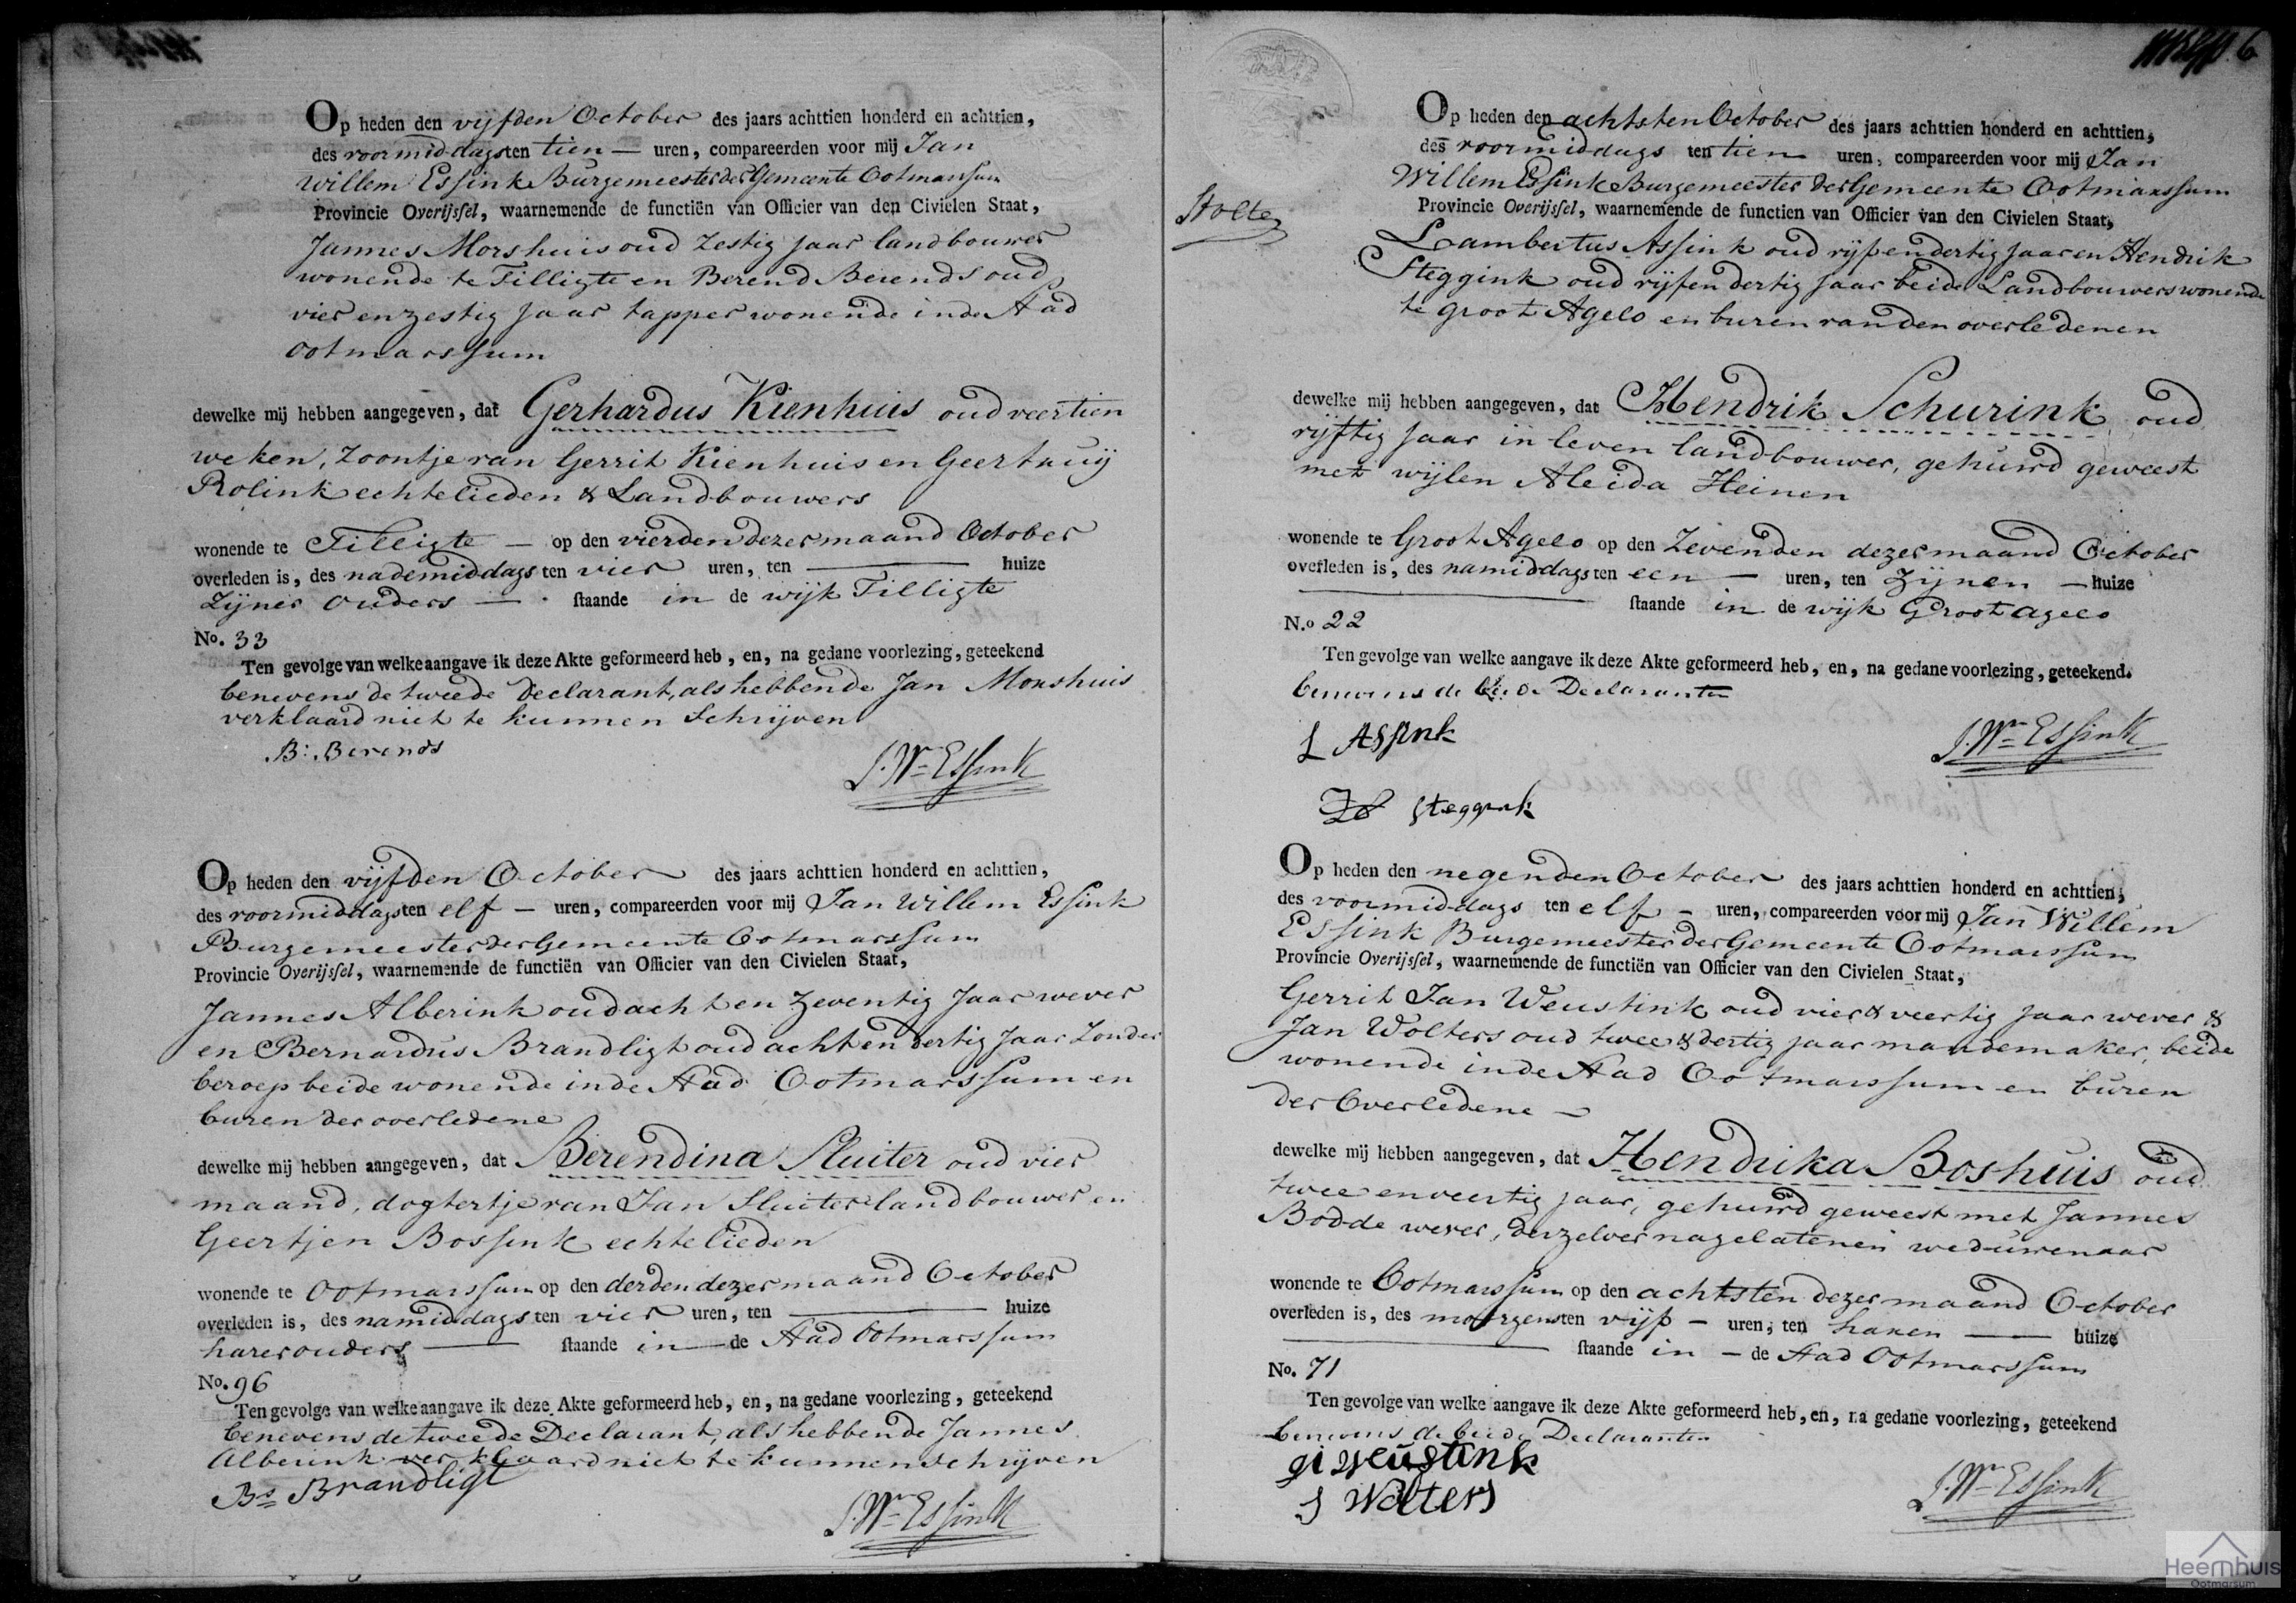 Op heden den vijfden October des jaars achttien honderd en achttien,
des voormiddags ten tien — uren, compareerden voor mij Jan
Willem Essink Burgemeester der Gemeente Ootmarssum
Provincie Overijssel, waarnemende de functiën van Officier van den Civielen Staat,
Jannes Morshuis oud Zestig Jaar landbouwer
wonende te Tilligte en Berend Berends oud
vier en zestig Jaar tapper wonende in de Stad
Ootmarssum
dewelke mij hebben aangegeven, dat Gerhardus Kienhuis oud veertien
weken, Zoontje van Gerrit Kienhuis en Geertruij
Rolink echtelieden & Landbouwers
wonende te Tilligte — op den vierden dezer maand October
overleden is, des nademiddags ten vier uren, ten — huize
Zijner Ouders — staande in de wijk Tilligte
No. 33
Ten gevolge van welke aangave ik deze Akte geformeerd heb, en, na gedane voorlezing, geteekend
benevens de tweede Declarant, als hebbende Jan Morshuis
verklaard niet te kunnen Schrijven
B: Berends
J. Wm Essink
Op heden den vijfden October des jaars achttien honderd en achttien,
des voormiddags ten elf — uren, compareerden voor mij Jan Willem Essink
Burgemeester der Gemeente Ootmarssum
Provincie Overijssel, waarnemende de functiën van Officier van den Civielen Staat,
Jannes Alberink oud acht en Zeventig Jaar wever
en Bernardus Brandligt oud acht en dertig Jaar Zonder
beroep beide wonende in de Stad Ootmarssum en
buren der overledene
dewelke mij hebben aangegeven, dat Berendina Sluiter oud vier
maand, dogtertje van Jan Sluiter landbouwer en
Geertjen Bossink echtelieden
wonende te Ootmarssum op den derden dezer maand October
overleden is, des namiddags ten vier uren, ten — huize
harer ouders — staande in — de Stad Ootmarssum
No. 96
Ten gevolge van welke aangave ik deze Akte geformeerd heb, en, na gedane voorlezing, geteekend
benevens de tweede Declarant, als hebbende Jannes
Alberink verklaard niet te kunnen schrijven
Bs Brandligt
J. Wm Essink
6
Stolte
Op heden den achtsten October des jaars achttien honderd en achttien,
des voormiddags ten tien uren, compareerden voor mij Jan
Willem Essink Burgemeester der Gemeente Ootmarssum
Provincie Overijssel, waarnemende de functien van Officier van den Civielen Staat,
Lambertus Assink oud vijf en dertig Jaar en Hendrik
Steggink oud vijf en dertig Jaar beide Landbouwers wonende
te Groot Agelo en buren van den overledenen
dewelke mij hebben aangegeven, dat Hendrik Schurink oud
vijftig Jaar in leven landbouwer, gehuwd geweest
met wijlen Aleida Heinen
wonende te Groot Agelo op den Zevenden dezer maand October
overleden is, des namiddags ten een — uren, ten Zijnen — huize
— staande in de wijk Groot Agelo
N.o 22
Ten gevolge van welke aangave ik deze Akte geformeerd heb, en, na gedane voorlezing, geteekend.
benevens de beide Declaranten
L Assink
J. Wm Essink
Steggink
Op heden den negenden October des jaars achttien honderd en achttien,
des voormiddags ten elf — uren, compareerden voor mij Jan Willem
Essink Burgemeester der Gemeente Ootmarssum
Provincie Overijssel, waarnemende de functiën van Officier van den Civielen Staat,
Gerrit Jan Weustink oud vier & veertig Jaar wever &
Jan Wolters oud twee & dertig Jaar mandemaker, beide
wonende in de Stad Ootmarssum en buren
der Overledene —
dewelke mij hebben aangegeven, dat Hendrika Boshuis oud
twee en veertig jaar, gehuwd geweest met Jannes
Bodde wever, derzelver nagelatenen weduwenaar
wonende te Ootmarssum op den achtsten dezer maand October
overleden is, des morgens ten vijf — uren, ten haren — huize
— staande in — de Stad Ootmarssum
No. 71
Ten gevolge van welke aangave ik deze Akte geformeerd heb, en, na gedane voorlezing, geteekend
benevens de beide Declaranten
gi Weustink
J Wolters
J. Wm Essink
Heemhuis
Ootmarsum